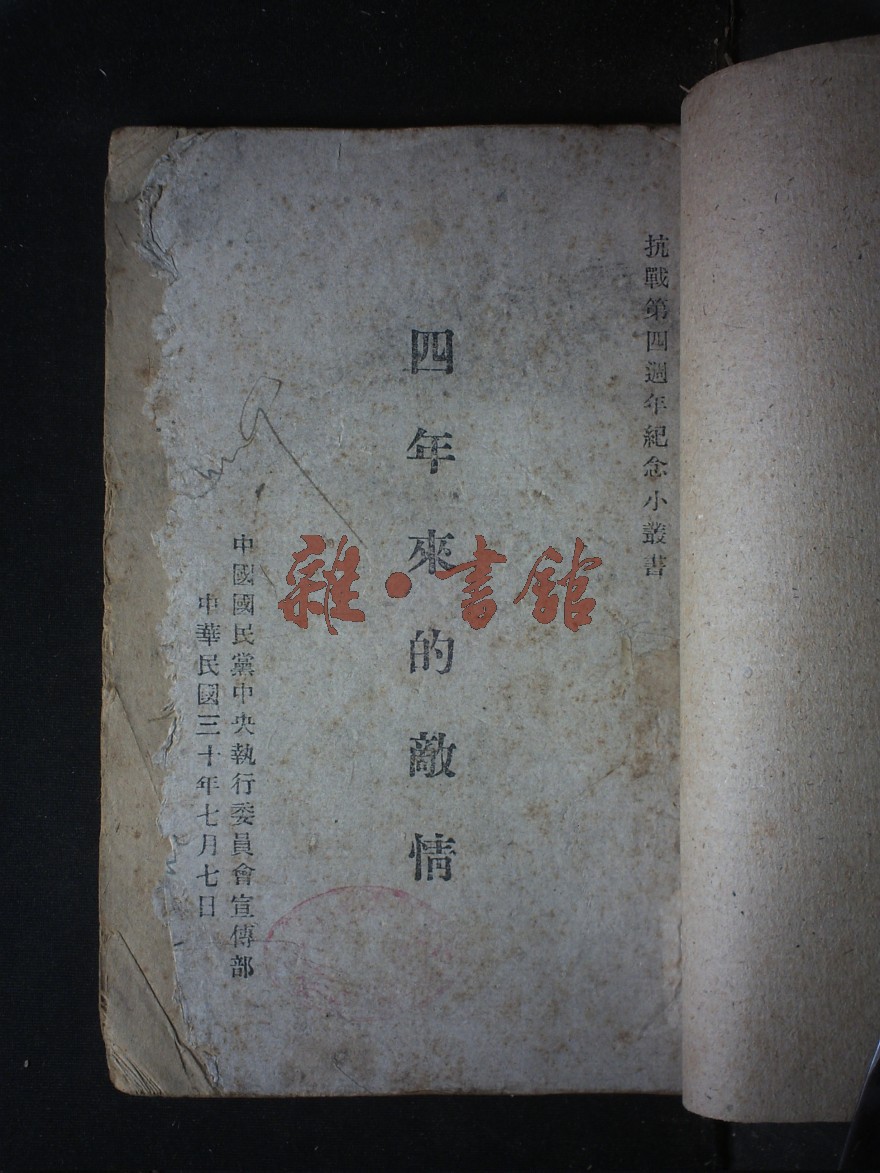 抗戰第四週年紀念小叢書
四年來的敵情
中國國民黨中央執行委員會宣傳部
中華民國三十年七月七日
雜·書館